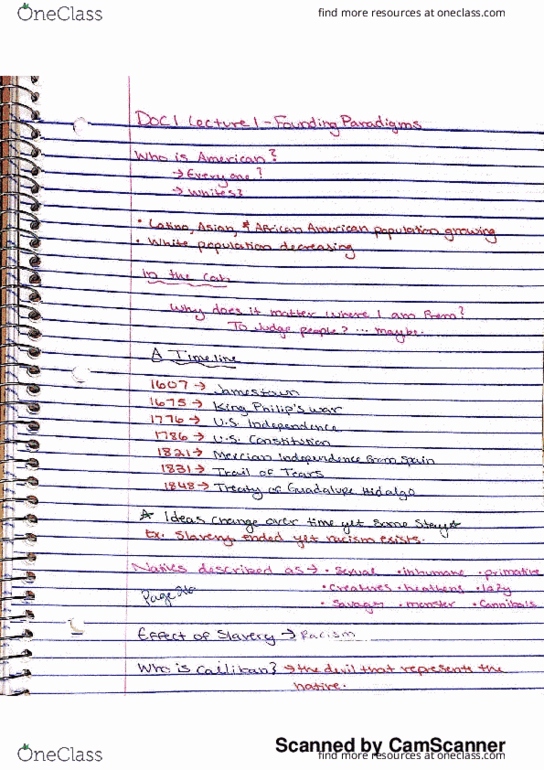 OneClass
find more resources at oneclass.com
DOC 1 Lecture 1 - Founding Paradigms
Who is American?
→ Everyone?
→ Whites?
• Latino, Asian, & African American population growing
• White population decreasing
In the Cab
Why does it matter where I am from?
To Judge people? ... maybe.
A Timeline
1607 → Jamestown
1675 → King Philip's war
1776 → U.S. Independence
1786 → U.S. Constitution
1821 → Mexican Independence from Spain
1831 → Trail of Tears
1848 → Treaty of Guadalupe Hidalgo
☆ Ideas change over time yet some stay☆
Ex. Slavery ended yet racism exists.
Natives described as → • Sexual • inhumane • primative
Page • Creatures • heathens • lazy
• Savages • monster • Cannibals
Effect of Slavery → Racism
Who is Caliban? → the devil that represents the
native.
Scanned by CamScanner
OneClass
find more resources at oneclass.com